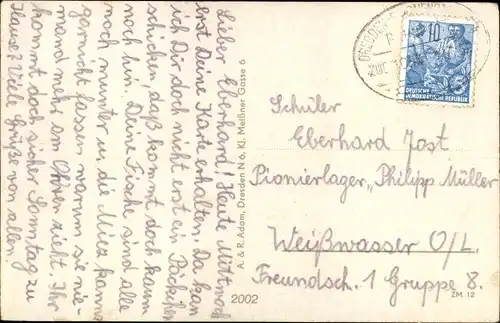 Lieber Eberhard! Heute Mittwoch
erst Deine Karte erhalten. Da kan
ich Dir doch nicht erst ein Päckchen
schicken, daß kommt doch kaum
noch hin. Deine Fische sind alle
noch munter u. die Miez kanns
garnicht fassen warum sie nie-
mand mehr am Ohren zieht. Ihr
kommt doch sicher Sonntag zu
Hause? Viele Grüße von allen.
A. & R. Adam, Dresden N 6, Kl. Meißner Gasse 6
2002
10
DEUTSCHE
DEMOKRATISCHE REPUBLIK
Schüler
Eberhard Jost
Pionierlager „Philipp Müller
Weißwasser O/L.
Freundsch. 1 Gruppe 8.
ZM 12